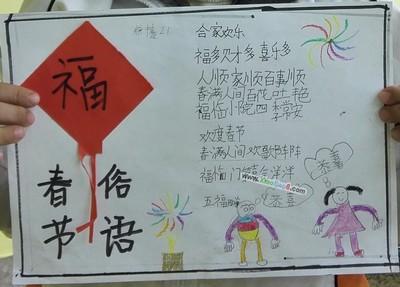 福
春节
俗语
合家欢乐
福多财才多 喜乐多
人顺家顺百事顺
春满人间百花吐艳
福临小院四季常安
欢度春节
春满人间欢歌阵阵
福临门
五福
恭喜
恭喜